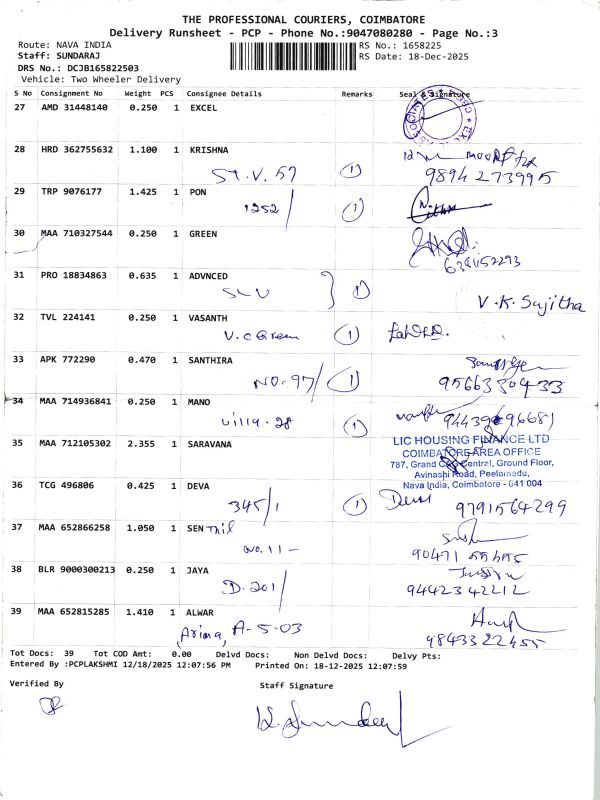 THE PROFESSIONAL COURIERS, COIMBATORE
Delivery Runsheet - PCP - Phone No.:9047080280 - Page No.:3
Route: NAVA INDIA
RS No.: 1658225
Staff: SUNDARAJ
RS Date: 18-Dec-2025
DRS No.: DCJB165822503
Vehicle: Two Wheeler Delivery
S No Consignment No Weight PCS Consignee Details Remarks Seal & Signature
27 AMD 31448140 0.250 1 EXCEL
28 HRD 362755632 1.100 1 KRISHNA
ST.V. 57 1 9894273995
29 TRP 9076177 1.425 1 PON
1252/ 1
30 MAA 710327544 0.250 1 GREEN
31 PRO 18834863 0.635 1 ADVNCED
1 V.K. Sujitha
32 TVL 224141 0.250 1 VASANTH
V.C Green 1
33 APK 772290 0.470 1 SANTHIRA
NO.97/ 1 9566330433
34 MAA 714936841 0.250 1 MANO
Villa-28 1
35 MAA 712105302 2.355 1 SARAVANA
LIC HOUSING FINANCE LTD
COIMBATORE AREA OFFICE
787, Grand Central, Ground Floor,
Avinashi Road, Peelamedu,
Nava India, Coimbatore - 641 004
36 TCG 496806 0.425 1 DEVA
345/1 1 9791564299
37 MAA 652866258 1.050 1 SENThil
NO.11-
38 BLR 9000300213 0.250 1 JAYA
D-201/ 9442342212
39 MAA 652815285 1.410 1 ALWAR
A-5-03 9843322455
Tot Docs: 39 Tot COD Amt: 0.00 Delvd Docs: Non Delvd Docs: Delvy Pts:
Entered By :PCPLAKSHMI 12/18/2025 12:07:56 PM Printed On: 18-12-2025 12:07:59
Verified By
Staff Signature